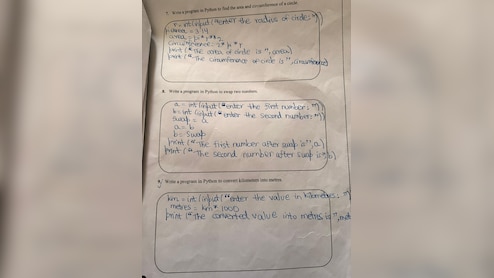 7. Write a program in Python to find the area and circumference of a circle.
r = int(input("enter the radius of circle: "))
area = pi*r**2
circumference = 2*pi*r
print("the area of circle is", area)
print("The circumference of circle is", circumference)
8. Write a program in Python to swap two numbers.
a = int(input("enter the first number: "))
b = int(input("enter the second number: "))
swap = a
a = b
b = swap
print("The first number after swap is", a)
print("The second number after swap is", b)
9. Write a program in Python to convert kilometers into metres.
km = int(input("enter the value in kilometres: "
metres = km * 1000
print("The converted value into metres is",